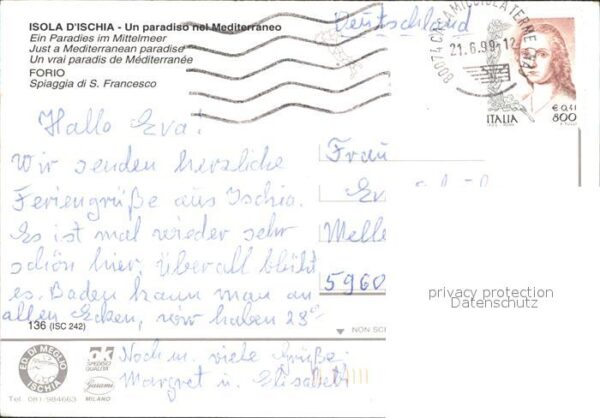 ISOLA D'ISCHIA - Un paradiso nel Mediterraneo
Ein Paradies im Mittelmeer
Just a Mediterranean paradise
Un vrai paradis de Méditerranée
FORIO
Spiaggia di S. Francesco
Deutschland
80074 CASAMICCIOLA TERME
21.6.99-12
ITALIA
€ 0,41
800
Hallo Eva!
Wir senden herzliche
Feriengrüße aus Ischia.
Es ist mal wieder sehr
schön hier, überall blüht
es. Baden kann man an
allen Ecken, wir haben 28°
Noch m. viele Grüße
Margret u. Elisabeth
Frau
Melle
5960
privacy protection
Datenschutz
136 (ISC 242)
NON SC
ED. DI MEGLIO
ISCHIA
Tel. 081-984663
ak
SPEDISCI
QUALITA'
Garami
MILANO